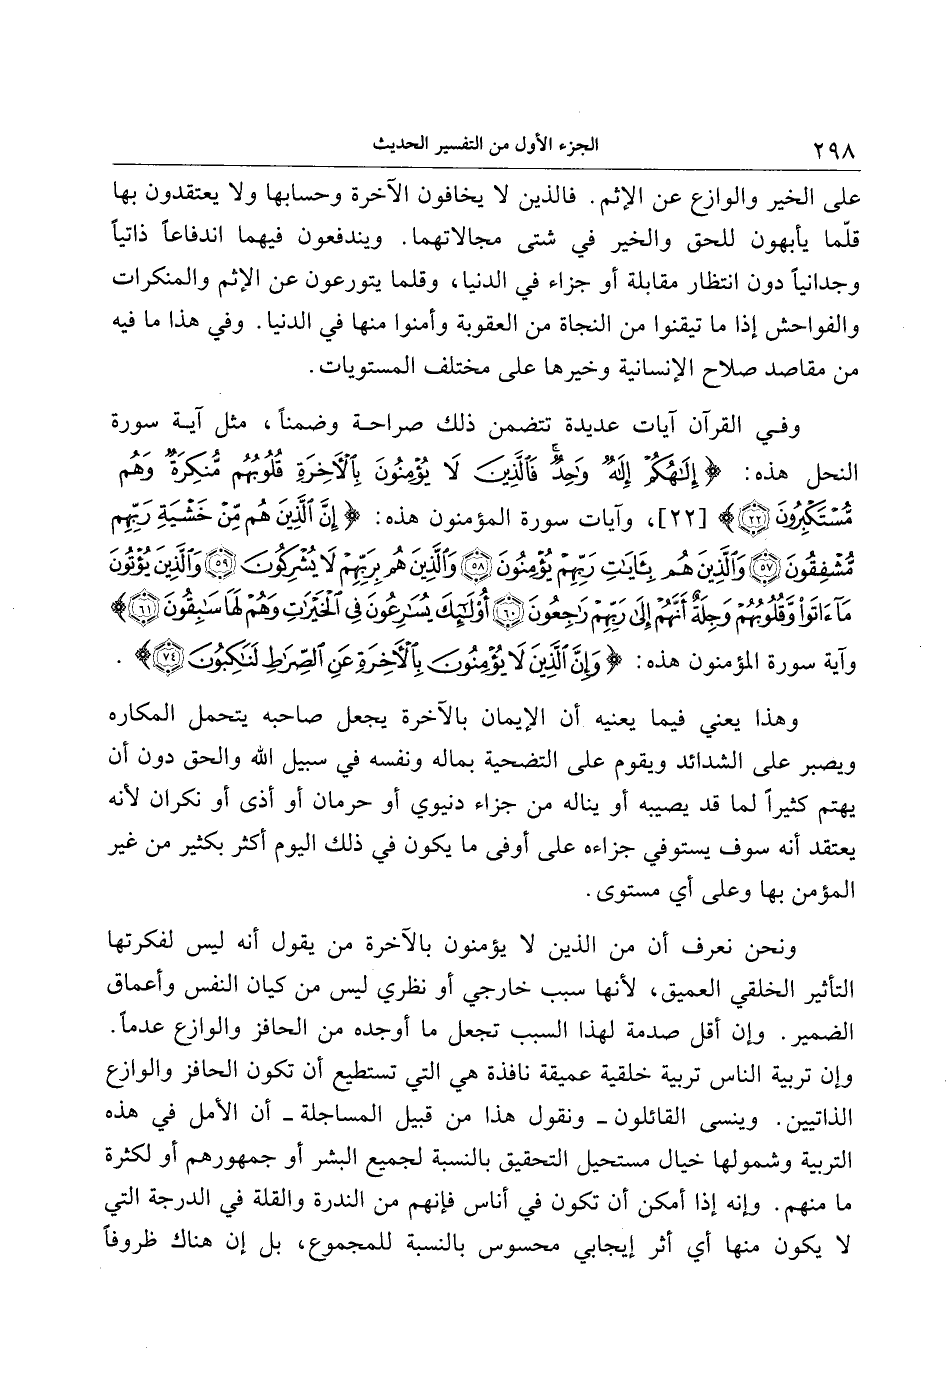 ٢٩٨
الجزء الأول من التفسير الحديث
على الخير والوازع عن الإثم. فالذين لا يخافون الآخرة وحسابها ولا يعتقدون بها
قلّما يأبهون للحق والخير في شتى مجالاتهما. ويندفعون فيهما اندفاعاً ذاتياً
وجدانياً دون انتظار مقابلة أو جزاء في الدنيا، وقلما يتورعون عن الإثم والمنكرات
والفواحش إذا ما تيقنوا من النجاة من العقوبة وأمنوا منها في الدنيا. وفي هذا ما فيه
من مقاصد صلاح الإنسانية وخيرها على مختلف المستويات.
وفي القرآن آيات عديدة تتضمن ذلك صراحة وضمناً، مثل آية سورة
النحل هذه: ﴿إِلَٰهُكُمْ إِلَٰهٌ وَٰحِدٌ ۚ فَٱلَّذِينَ لَا يُؤْمِنُونَ بِٱلْأَخِرَةِ قُلُوبُهُم مُّنكِرَةٌ وَهُم
مُّسْتَكْبِرُونَ ٢٢﴾ [٢٢]، وآيات سورة المؤمنون هذه: ﴿إِنَّ ٱلَّذِينَ هُم مِّنْ خَشْيَةِ رَبِّهِم
مُّشْفِقُونَ ٥٧ وَٱلَّذِينَ هُم بِـَٔايَٰتِ رَبِّهِمْ يُؤْمِنُونَ ٥٨ وَٱلَّذِينَ هُم بِرَبِّهِمْ لَا يُشْرِكُونَ ٥٩ وَٱلَّذِينَ يُؤْتُونَ
مَآ ءَاتَوا۟ وَّقُلُوبُهُمْ وَجِلَةٌ أَنَّهُمْ إِلَىٰ رَبِّهِمْ رَٰجِعُونَ ٦٠ أُو۟لَٰٓئِكَ يُسَٰرِعُونَ فِى ٱلْخَيْرَٰتِ وَهُمْ لَهَا سَٰبِقُونَ ٦١﴾
وآية سورة المؤمنون هذه: ﴿وَإِنَّ ٱلَّذِينَ لَا يُؤْمِنُونَ بِٱلْأَخِرَةِ عَنِ ٱلصِّرَٰطِ لَنَٰكِبُونَ ٧٤﴾.
وهذا يعني فيما يعنيه أن الإيمان بالآخرة يجعل صاحبه يتحمل المكاره
ويصبر على الشدائد ويقوم على التضحية بماله ونفسه في سبيل الله والحق دون أن
يهتم كثيراً لما قد يصيبه أو يناله من جزاء دنيوي أو حرمان أو أذى أو نكران لأنه
يعتقد أنه سوف يستوفي جزاءه على أوفى ما يكون في ذلك اليوم أكثر بكثير من غير
المؤمن بها وعلى أي مستوى.
ونحن نعرف أن من الذين لا يؤمنون بالآخرة من يقول أنه ليس لفكرتها
التأثير الخلقي العميق، لأنها سبب خارجي أو نظري ليس من كيان النفس وأعماق
الضمير. وإن أقل صدمة لهذا السبب تجعل ما أوجده من الحافز والوازع عدماً.
وإن تربية الناس تربية خلقية عميقة نافذة هي التي تستطيع أن تكون الحافز والوازع
الذاتيين. وينسى القائلون ـ ونقول هذا من قبيل المساجلة ـ أن الأمل في هذه
التربية وشمولها خيال مستحيل التحقيق بالنسبة لجميع البشر أو جمهورهم أو لكثرة
ما منهم. وإنه إذا أمكن أن تكون في أناس فإنهم من الندرة والقلة في الدرجة التي
لا يكون منها أي أثر إيجابي محسوس بالنسبة للمجموع، بل إن هناك ظروفاً